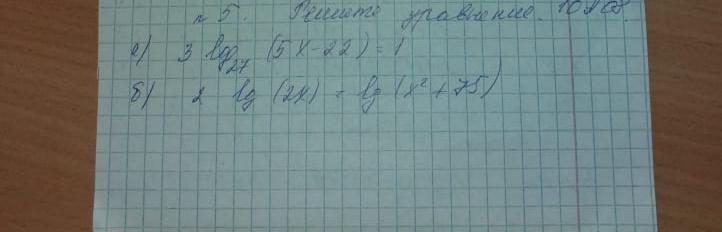 № 5. Решите уравнение.
а) 3 log₂₇ (5x-22) = 1
б) 2 lg (2x) = lg (x² + 75)